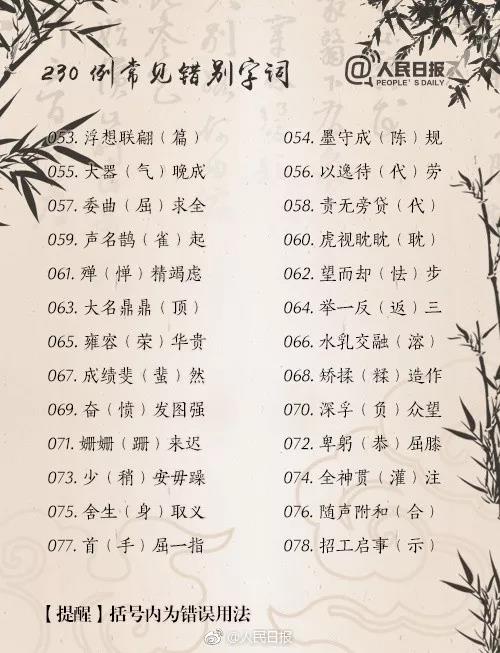 230 例常见错别字词
@人民日报
PEOPLE'S DAILY
053. 浮想联翩（篇） 054. 墨守成（陈）规
055. 大器（气）晚成 056. 以逸待（代）劳
057. 委曲（屈）求全 058. 责无旁贷（代）
059. 声名鹊（雀）起 060. 虎视眈眈（耽）
061. 殚（惮）精竭虑 062. 望而却（怯）步
063. 大名鼎鼎（顶） 064. 举一反（返）三
065. 雍容（荣）华贵 066. 水乳交融（溶）
067. 成绩斐（蜚）然 068. 矫揉（糅）造作
069. 奋（愤）发图强 070. 深孚（负）众望
071. 姗姗（跚）来迟 072. 卑躬（恭）屈膝
073. 少（稍）安毋躁 074. 全神贯（灌）注
075. 舍生（身）取义 076. 随声附和（合）
077. 首（手）屈一指 078. 招工启事（示）
【提醒】括号内为错误用法
@人民日报